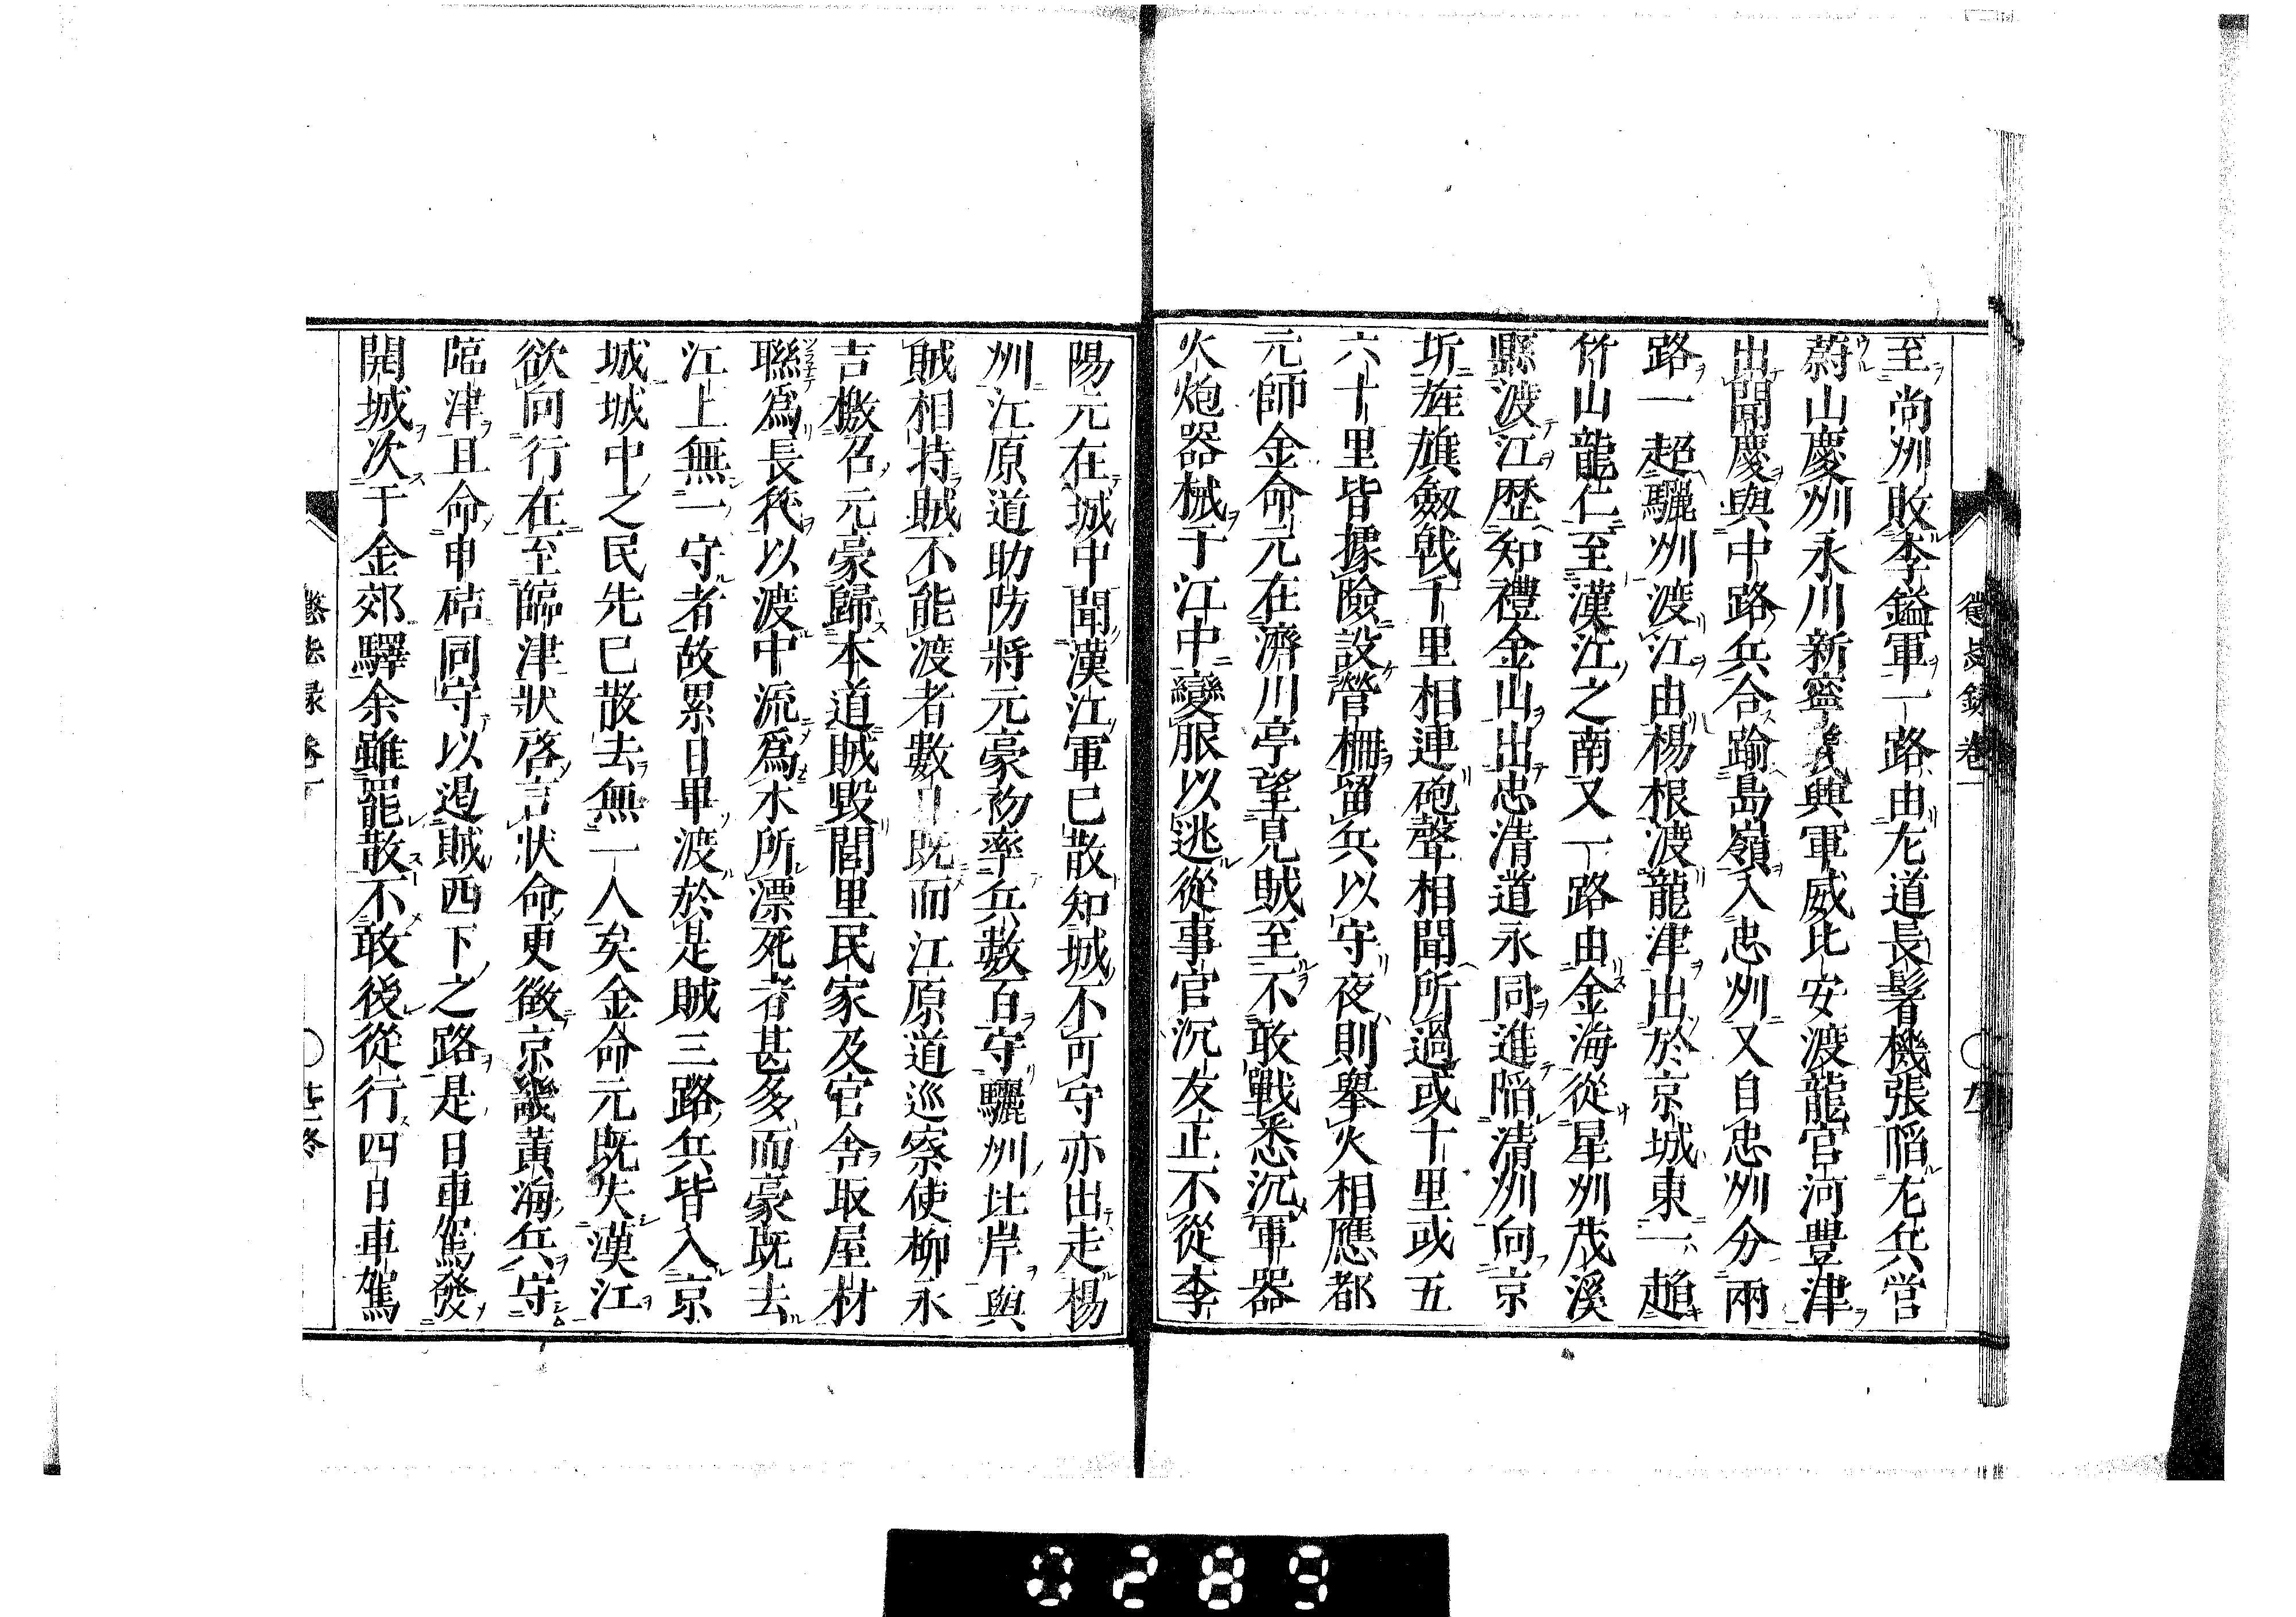 至尚州敗李鎰軍一路由左道長鬐機張陷左兵營
蔚山慶州永川新寧義興軍威比安渡龍宮河豐津
出聞慶與中路兵合踰鳥嶺入忠州又自忠州分兩
路一趨驪州渡江由楊根渡龍津出於京城東一趨
竹山龍仁至漢江之南又一路由金海從星州茂溪
縣渡江歷知禮金山出忠清道永同進陷清州向京
圻旌旗劔戟千里相連砲聲相聞所過或十里或五
六十里皆據險設營柵留兵以守夜則舉火相應都
元帥金命元在濟川亭望見賊至不敢戰悉沉軍器
火炮器械于江中變服以逃從事官沉友正不從李
陽元在城中聞漢江軍已散知城不可守亦出走楊
州江原道助防將元豪初率兵數百守驪州北岸與
賊相持賊不能渡者數日既而江原道巡察使柳永
吉檄召元豪歸本道賊毀閭里民家及官舍取屋材
聯爲長筏以渡中流爲水所漂死者甚多而豪既去
江上無一守者故累日畢渡於是賊三路兵皆入京
城城中之民先已散去無一人矣金命元既失漢江
欲向行在至臨津狀啓言狀命更徵京畿黃海兵守
臨津且命申硈同守以遏賊西下之路是日車駕發
開城次于金郊驛余雖罷散不敢後從行四日車駕
懲毖録 卷一